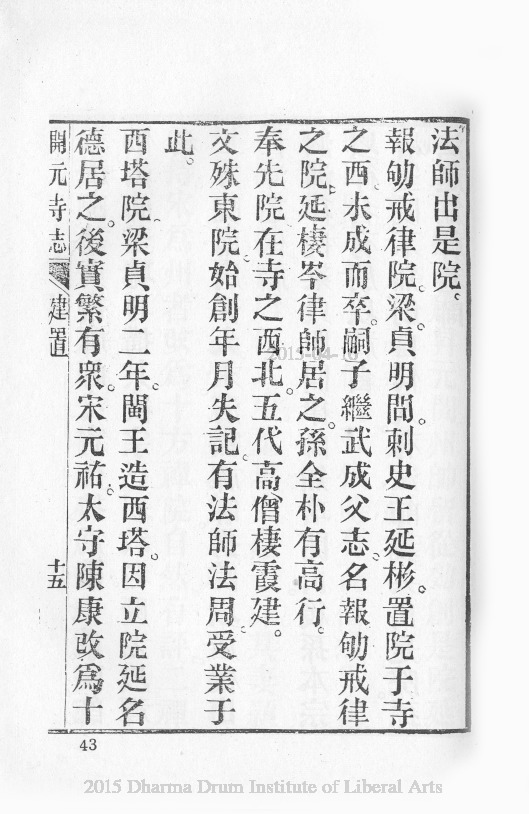 法師出是院。
報劬戒律院。梁貞明間。刺史王延彬。置院于寺
之西。未成而卒。嗣子繼武成父志。名報劬戒律
之院。延棲岑律師居之。孫全朴有高行。
奉先院。在寺之西北。五代高僧棲霞建。
文殊東院。始創年月失記。有法師法周。受業于
此。
西塔院。梁貞明二年。閩王造西塔。因立院延名
德居之。後實繁有衆。宋元祐。太守陳康改爲十
開元寺志 建置 十五
43
2015-04-16
2015 Dharma Drum Institute of Liberal Arts